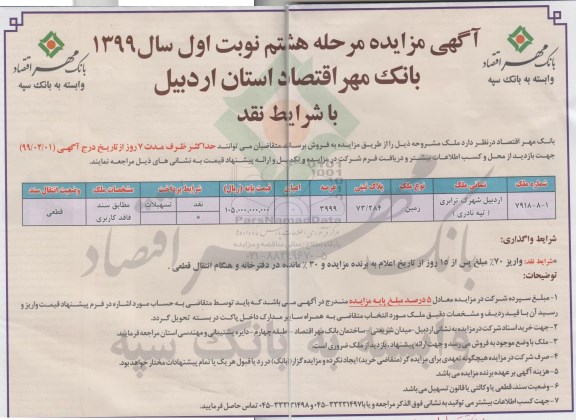 آگهی مزایده مرحله هشتم نوبت اول سال ۱۳۹۹
بانک مهر اقتصاد استان اردبیل
با شرایط نقد
بانک مهر اقتصاد
وابسته به بانک سپه
بانک مهر اقتصاد
وابسته به بانک سپه
بانک مهر اقتصاد در نظر دارد ملک مشروحه ذیل را از طریق مزایده به فروش برساند متقاضیان می توانند حداکثر ظرف مدت ۷ روز از تاریخ درج آگهی (۹۹/۰۲/۰۱)
جهت بازدید از محل و کسب اطلاعات بیشتر و دریافت فرم شرکت در مزایده و تکمیل و ارائه پیشنهاد قیمت به نشانی های ذیل مراجعه نمایند.
شماره ملک نشانی ملک نوع ملک پلاک ثبتی عرصه اعیان قیمت پایه (ریال) شرایط پرداخت مشخصات ملک وضعیت انتقال سند
۷۹۱۸-۸-۱ اردبیل شهرک ترابری ( تپه نادری ) زمین ۷۳/۲۸۴ ۳۹۹۹ ۱۰۵,۰۰۰,۰۰۰,۰۰۰ نقد * تسهیلات مطابق سند فاقد کاربری قطعی
شرایط واگذاری:
*شرایط نقد: واریز ۷۰٪ مبلغ پس از ۱۵ روز از تاریخ اعلام به برنده مزایده و ۳۰ ٪ مانده در دفترخانه و هنگام انتقال قطعی.
توضیحات:
۱- مبلغ سپرده شرکت در مزایده معادل ۵ درصد مبلغ پایه مزایده مندرج در آگهی می باشد که باید توسط متقاضی به حساب مورد اشاره در فرم پیشنهاد قیمت واریز و
رسید آن با قید ردیف و مشخصات دقیق ملک مورد انتخاب متقاضی به همراه سایر مدارک داخل پاکت در بسته تحویل گردد.
۲- جهت خرید اسناد شرکت در مزایده به نشانی اردبیل - میدان شریعتی - ساختمان بانک مهر اقتصاد - طبقه چهارم - دایره پشتیبانی و مهندسی استان مراجعه فرمایند.
۳- ملک با وضع موجود به فروش می رسد و جهت ارائه پیشنهاد، بازدید از ملک ضروری است.
۴- صرف شرکت در مزایده هیچگونه تعهدی برای مزایده گر (متقاضی خرید) ایجاد نکرده و مزایده گزار (بانک) در رد یا قبول هر یک یا تمام پیشنهادات مختار خواهد بود.
۵- هزینه آگهی بر عهده برنده مزایده می باشد.
۶- وضعیت سند، قطعی یا وکالتی یا قانون تسهیل می باشد.
۷- جهت کسب اطلاعات بیشتر می توانید به نشانی فوق الذکر مراجعه و یا با ۳۳۳۳۱۴۹۷-۰۴۵ و ۳۳۳۳۱۴۹۸-۰۴۵ تماس حاصل فرمایید.
ParsNamadData
۰۲۱-۸۸۳۴۹۶۷۰-۵